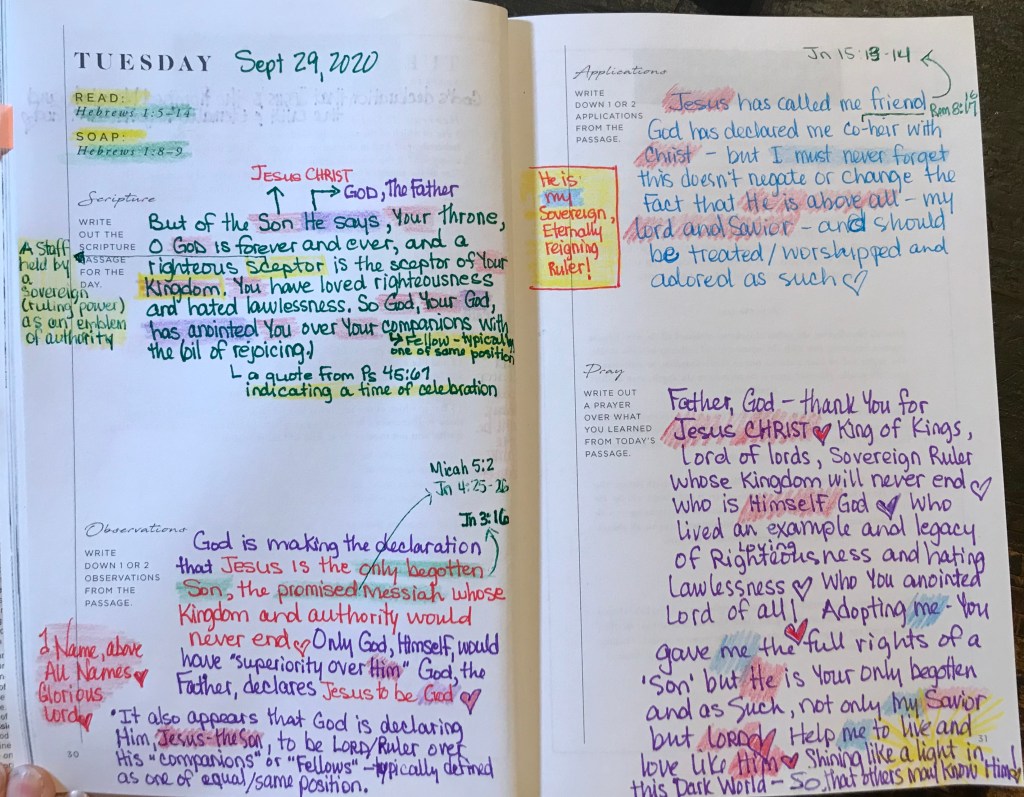 TUESDAY Sept 29, 2020
READ:
Hebrews 1:5-14
SOAP:
Hebrews 1:8-9
Scripture
WRITE
OUT THE
SCRIPTURE
PASSAGE
FOR THE
DAY.
Jesus CHRIST
GOD, The Father
But of the Son He says, Your throne,
O GOD is forever and ever, and a
righteous sceptor is the sceptor of Your
Kingdom. You have loved righteousness
and hated lawlessness. So God, Your God,
has anointed You over Your companions with
the (oil of rejoicing.)
Fellow - typically
one of same position
a quote from Ps 45:6-7
indicating a time of celebration
A Staff
held by
a
Sovereign
(ruling power)
as an emblem
of authority
Micah 5:2
Jn 4:25-26
Jn 3:16
Observations
WRITE
DOWN 1 OR 2
OBSERVATIONS
FROM THE
PASSAGE.
God is making the declaration
that Jesus is the only begotten
Son, the promised Messiah whose
Kingdom and authority would
never end Only God, Himself, would
have "superiority over Him" God, the
Father, declares Jesus to be God
It also appears that God is declaring
Him, Jesus-the Son, to be LORD/Ruler over
His "companions" or "Fellows" - typically defined
as one of equal/same position.
Name, above
All Names
Glorious
Lord
30
He is
my
Sovereign,
Eternally
reigning
Ruler!
Jn 15:13-14
Rom 8:
Applications
WRITE
DOWN 1 OR 2
APPLICATIONS
FROM THE
PASSAGE.
Jesus has called me friend
God has declared me co-heir with
Christ - but I must never forget
this doesn't negate or change the
fact that He is above all - my
lord and Savior - and should
be treated/worshipped and
adored as such
Pray
WRITE OUT
A PRAYER
OVER WHAT
YOU LEARNED
FROM TODAY'S
PASSAGE.
Father, God - thank You for
Jesus CHRIST King of Kings,
Lord of lords, Sovereign Ruler
whose Kingdom will never end
who is Himself God Who
lived an example and legacy
of loving Righteousness and hating
Lawlessness Who You anointed
Lord of all! Adopting me - You
gave me the full rights of a
'Son' but He is Your only begotten
and as such, not only my Savior
but LORD Help me to live and
love like Him Shining like a light in
this Dark World - So, that others may know Him
31